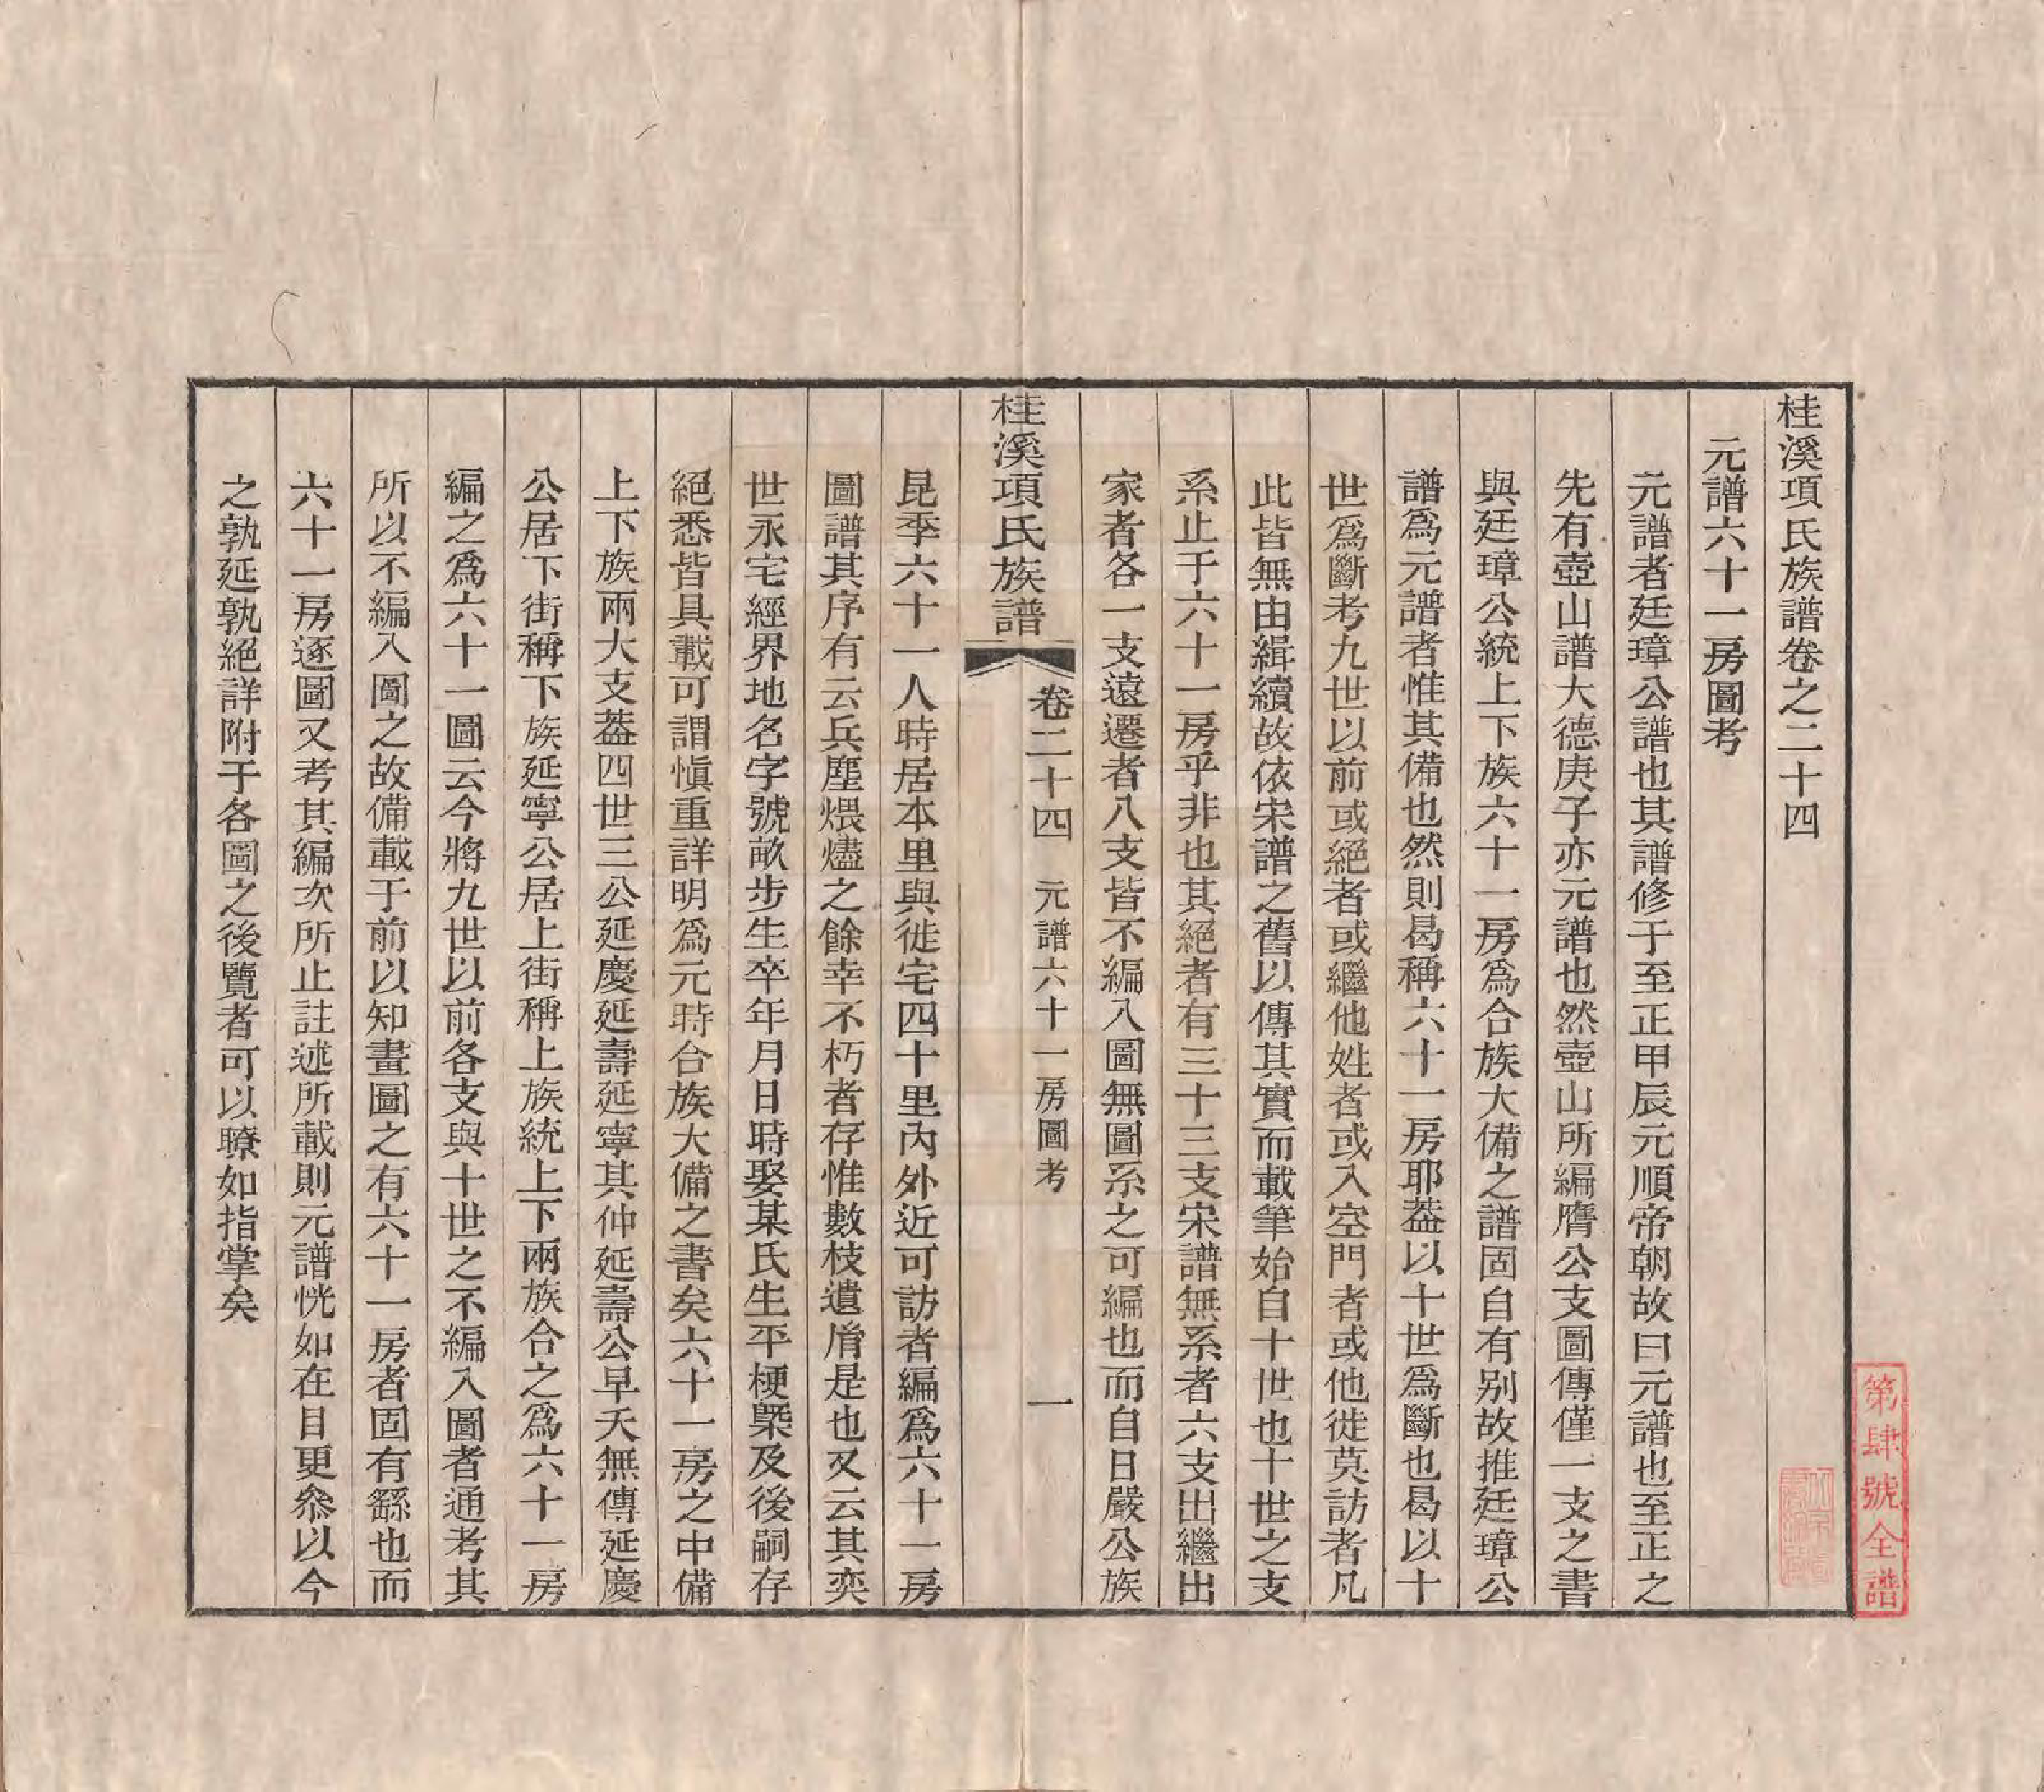 桂溪項氏族譜卷之二十四
元譜六十一房圖考
元譜者廷璋公譜也其譜修于至正甲辰元順帝朝故曰元譜也至正之
先有壺山譜大德庚子亦元譜也然壺山所編膺公支圖傳僅一支之書
與廷璋公統上下族六十一房爲合族大備之譜固自有别故推廷璋公
譜爲元譜者惟其備也然則曷稱六十一房耶葢以十世爲斷也曷以十
世爲斷考九世以前或絕者或繼他姓者或入空門者或他徙莫訪者凡
此皆無由緝續故依宋譜之舊以傳其實而載筆始自十世也十世之支
系止于六十一房乎非也其絕者有三十三支宋譜無系者六支出繼出
家者各一支遠遷者八支皆不編入圖無圖系之可編也而自日嚴公族
桂溪項氏族譜 卷二十四 元譜六十一房圖考 一
昆季六十一人時居本里與徙宅四十里內外近可訪者編爲六十一房
圖譜其序有云兵塵煨燼之餘幸不朽者存惟數枝遺𦙍是也又云其奕
世永宅經界地名字號畝步生卒年月日時娶某氏生平梗槩及後嗣存
絕悉皆具載可謂慎重詳明爲元時合族大備之書矣六十一房之中備
上下族兩大支葢四世三公延慶延壽延寧其仲延壽公早夭無傳延慶
公居下街稱下族延寧公居上街稱上族統上下兩族合之爲六十一房
編之爲六十一圖云今將九世以前各支與十世之不編入圖者通考其
所以不編入圖之故備載于前以知畫圖之有六十一房者固有繇也而
六十一房逐圖又考其編次所止註述所載則元譜恍如在目更叅以今
之孰延孰絕詳附于各圖之後覽者可以瞭如指掌矣
第肆號全譜